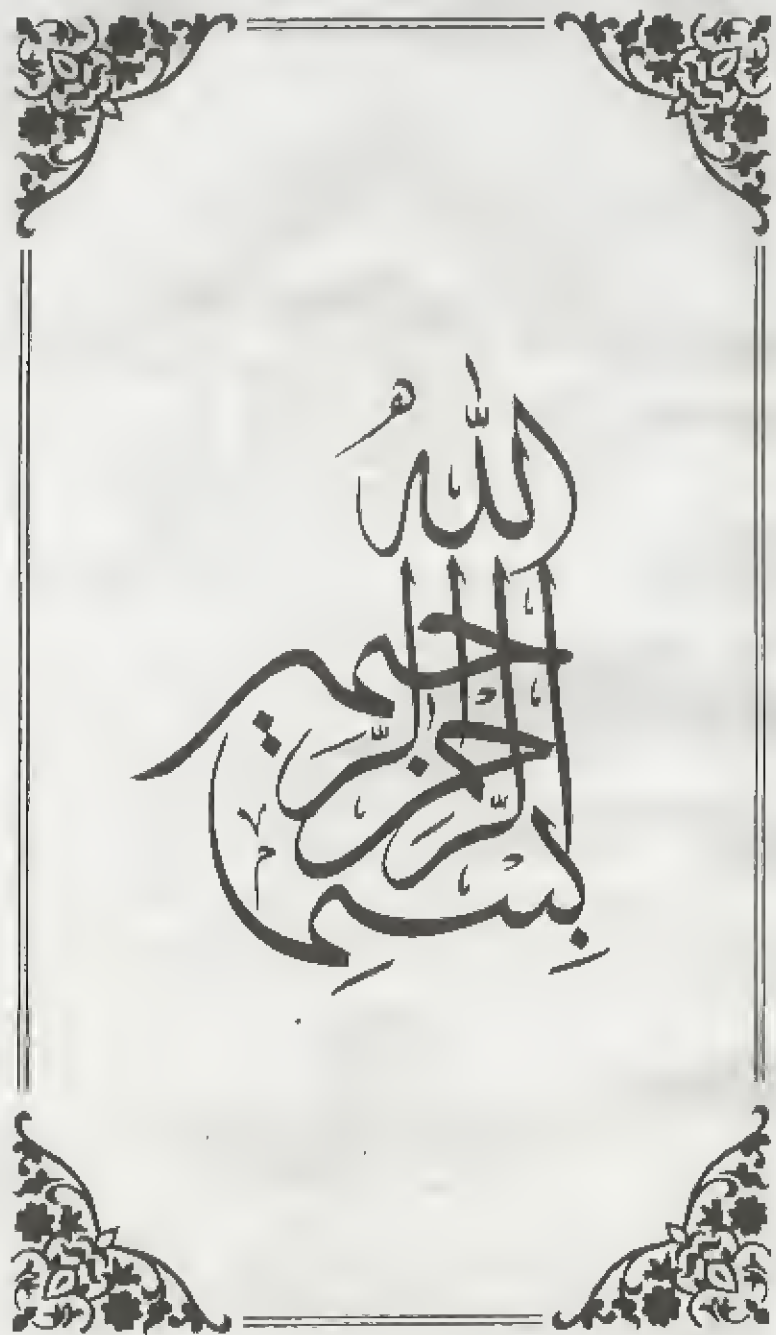 بِسْمِ اللّٰهُ الرَّحْمٰنِ الرَّحِيمِ